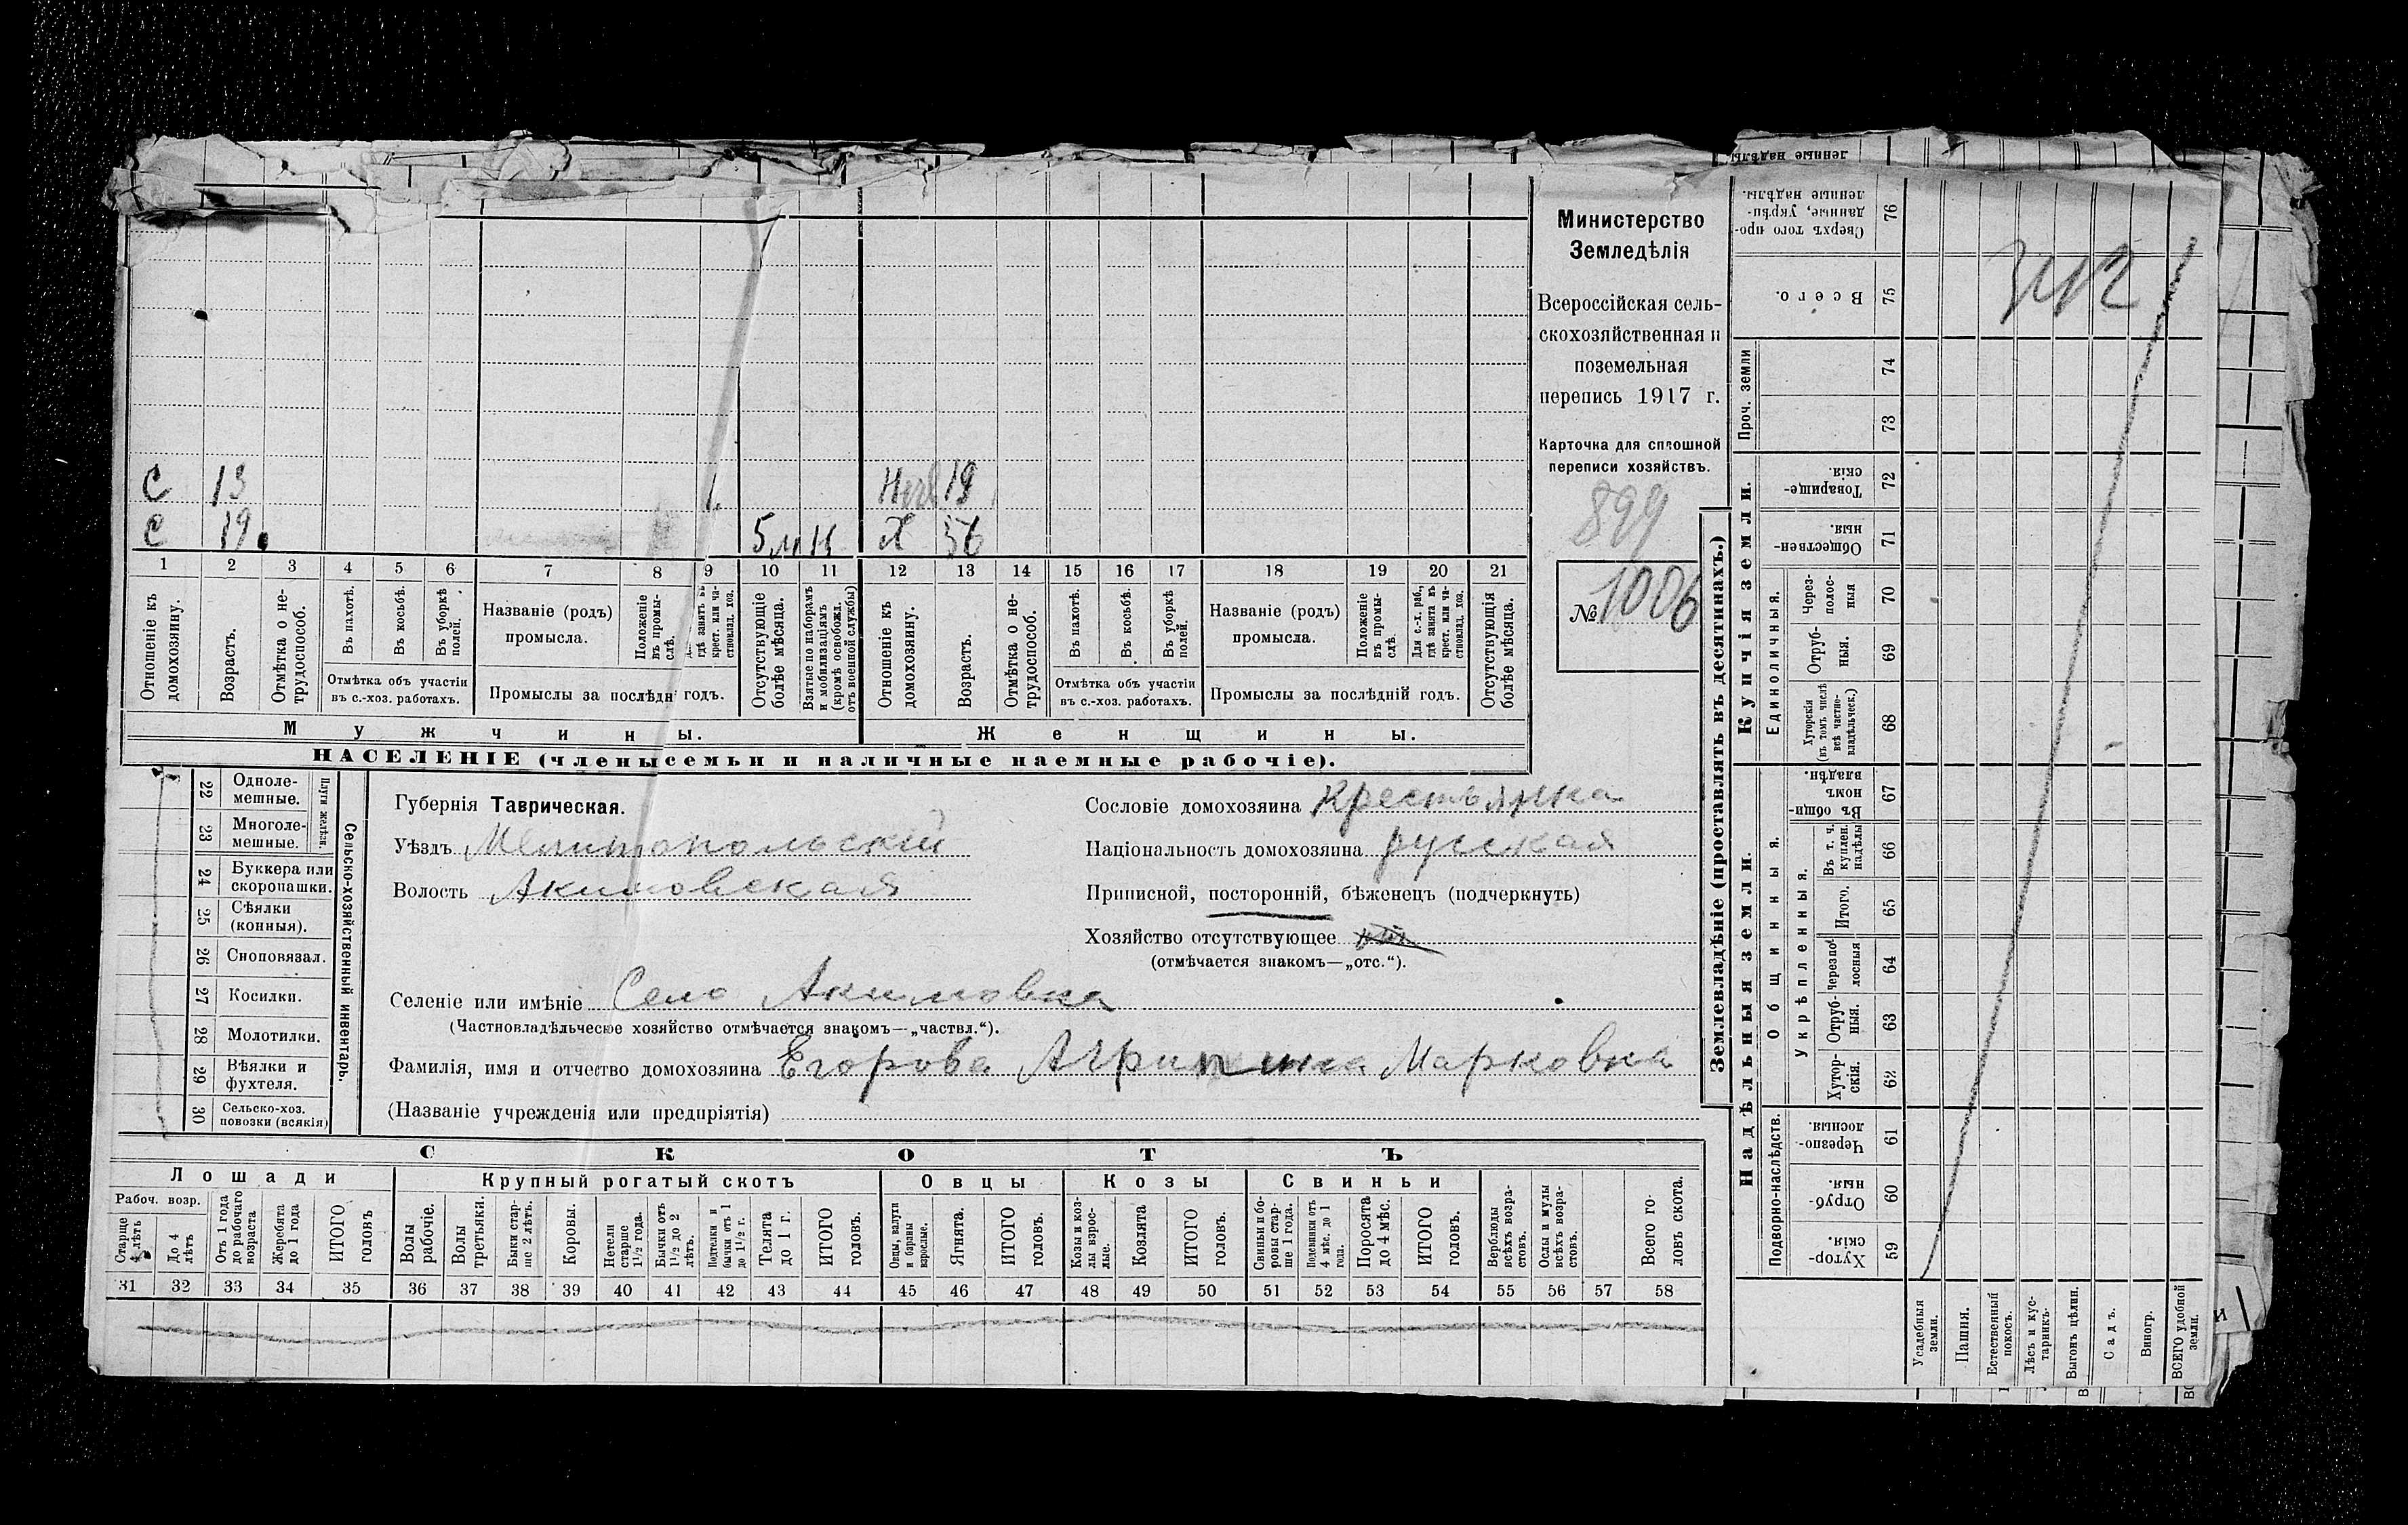 Министерство
Земледѣлія
Всероссійская сель-
скохозяйственная и
поземельная
перепись 1917 г.
Карточка для сплошной
переписи хозяйствъ.
899
№ 1006
С 13
19
С 19 5 м Н
Х 56
1 2 3 4 5 6 7 8 9 10 11 12 13 14 15 16 17 18 19 20 21
Отношеніе къ домохозяину.
Возрастъ.
Отмѣтка о не-
трудоспособ.
Въ пахотѣ.
Въ косьбѣ.
Въ уборкѣ
полей.
Отмѣтка объ участіи
въ с.-хоз. работахъ.
Названіе (родъ)
промысла.
Положеніе
въ промы-
слѣ.
гдѣ занятъ въ
крест. или ча-
стновлад. хоз.
Промыслы за послѣдн годъ.
Отсутствующіе
болѣе мѣсяца.
Взятые по наборамъ
и мобилизаціямъ
(кромѣ освобожд.
отъ военной службы)
Отношеніе къ
домохозяину.
Возрастъ.
Отмѣтка о не-
трудоспособ.
Въ пахотѣ.
Въ косьбѣ.
Въ уборкѣ
полей.
Отмѣтка объ участіи
въ с.-хоз. работахъ.
Названіе (родъ)
промысла.
Положеніе
въ промы-
слѣ.
Для с.-х. раб.,
гдѣ занята въ
крест. или ча-
стновлад. хоз.
Промыслы за послѣдній годъ.
Отсутствующія
болѣе мѣсяца.
Мужчины.
Женщины.
НАСЕЛЕНІЕ (члены семьи и наличные наемные рабочіе).
22 Одноле-
мешные.
23 Многоле-
мешные.
Плуги желѣз.
24 Буккера или
скоропашки.
25 Сѣялки
(конныя).
26 Сноповязал.
27 Косилки.
28 Молотилки.
29 Вѣялки и
фухтеля.
30 Сельско-хоз.
повозки (всякія)
Сельско-хозяйственный инвентарь.
Губернія Таврическая.
Уѣздъ Мелитопольскій
Волость Акимовская
Сословіе домохозяина Крестьянка
Національность домохозяина русская
Приписной, посторонній, бѣженецъ (подчеркнуть)
Хозяйство отсутствующее
(отмѣчается знакомъ—„отс.“).
Селеніе или имѣніе Село Акимовка
(Частновладѣльческое хозяйство отмѣчается знакомъ—„частвл.“).
Фамилія, имя и отчество домохозяина Егорова Агрипина Марковна
(Названіе учрежденія или предпріятія)
СКОТЪ
Лошади
Крупный рогатый скотъ
Овцы
Козы
Свиньи
Рабоч. возр.
Старше
4 лѣтъ
До 4
лѣтъ
Отъ 1 года
до рабочаго
возраста
Жеребята
до 1 года
ИТОГО
головъ
Волы
рабочіе.
Волы
третьяки.
Быки стар-
ше 2 лѣтъ.
Коровы.
Нетели
старше
1½ года.
Бычки отъ
1½ до 2
лѣтъ.
Подтелки и
бычки отъ 1
до 1½ г.
Телята
до 1 г.
ИТОГО
головъ.
Овцы, валухи
и бараны
взрослые.
Ягнята.
ИТОГО
головъ.
Козы и коз-
лы взрос-
лые.
Козлята
ИТОГО
головъ.
Свиньи и бо-
ровы стар-
ше 1 года.
Подсвинки отъ
4 мѣс. до 1
года.
Поросята
до 4 мѣс.
ИТОГО
головъ.
Верблюды
всѣхъ возра-
стовъ.
Ослы и мулы
всѣхъ возра-
стовъ.
Всего го-
ловъ скота.
31 32 33 34 35 36 37 38 39 40 41 42 43 44 45 46 47 48 49 50 51 52 53 54 55 56 57 58
Землевладѣніе (проставлять въ десятинахъ.)
Купчія земли.
Надѣльныя земли.
ленные надѣлы
76 Сверхъ того про-
данные, укрѣп-
ленные надѣлы.
75 Всего.
Проч. земли
74
73
72 Товарище-
скія.
71 Обществен-
ныя.
Единоличныя.
70 Через-
полос-
ныя
69 Отруб-
ныя.
68 Хуторскія
(въ томъ числѣ
всѣ частно-
владѣльческ.)
Общинныя.
67 Въ общин-
номъ
владѣн.
Укрѣпленныя.
66 Въ т. ч.
куплен.
надѣлы
65 Итого.
64 Черезпо-
лосныя
63 Отруб-
ныя.
62 Хутор-
скія.
Подворно-наслѣдств.
61 Черезпо-
лосныя.
60 Отруб-
ныя.
59 Хутор-
скія.
Усадебныя
земли.
Пашня.
Естественный
покосъ.
Лѣсъ и кус-
тарникъ.
Выгонъ цѣлин.
Садъ.
Виногр.
ВСЕГО удобной
земли.